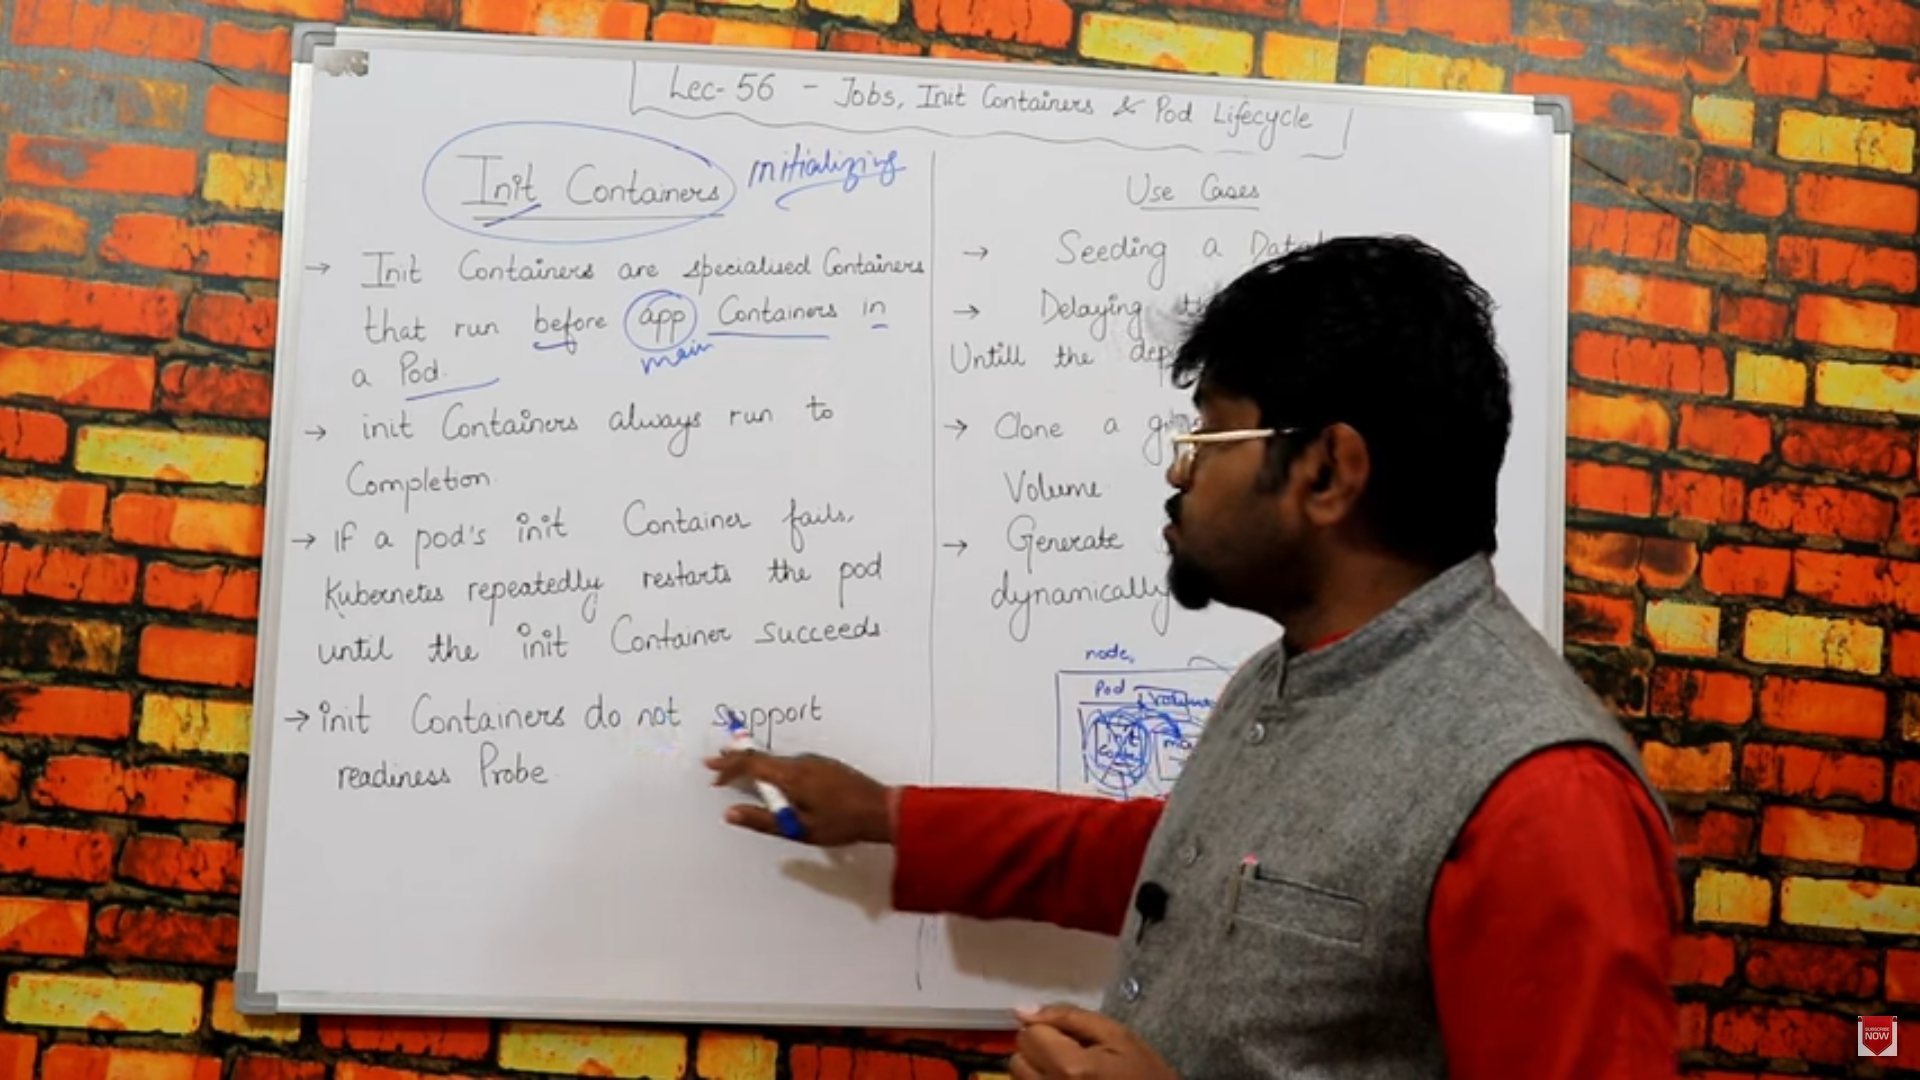 Lec-56 - Jobs, Init Containers & Pod Lifecycle
Init Containers
initializing
→ Init Containers are specialised Containers
that run before app Containers in
main
a Pod.
→ init Containers always run to
Completion.
→ If a pod's init Container fails,
Kubernetes repeatedly restarts the pod
until the init Container succeeds
→ init Containers do not support
readiness Probe.
Use Cases
→ Seeding a
→ Delaying
Untill the
→ Clone a
Volume
→ Generate
dynamically
node
Pod
init
SUBSCRIBE
NOW